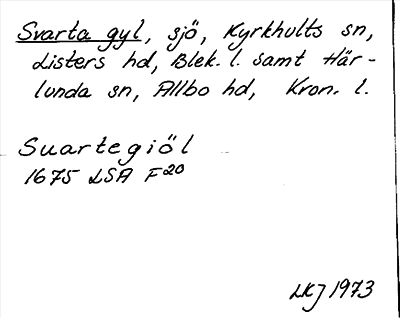 Svarta gyl, sjö, Kyrkhults sn,
Listers hd, Blek. l. samt Här-
lunda sn, Allbo hd, Kron. l.
Suartegiöl
1675 LSA F20
LKJ 1973